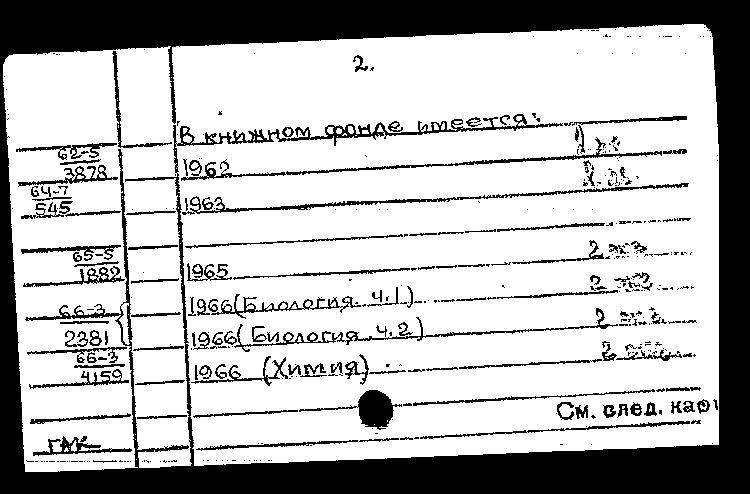 2.
В книжном фонде имеется:
62-5
3878 1962 2 экз
64-7
545 1963 2 экз.
65-5
1882 1965 2 экз
66-3 1966 (Биология. ч.1) 2 экз
2381 1966 (Биология. ч.2) 2 экз
66-3
4159 1966 (Химия) 2 экз
См. след. кар
ГАК